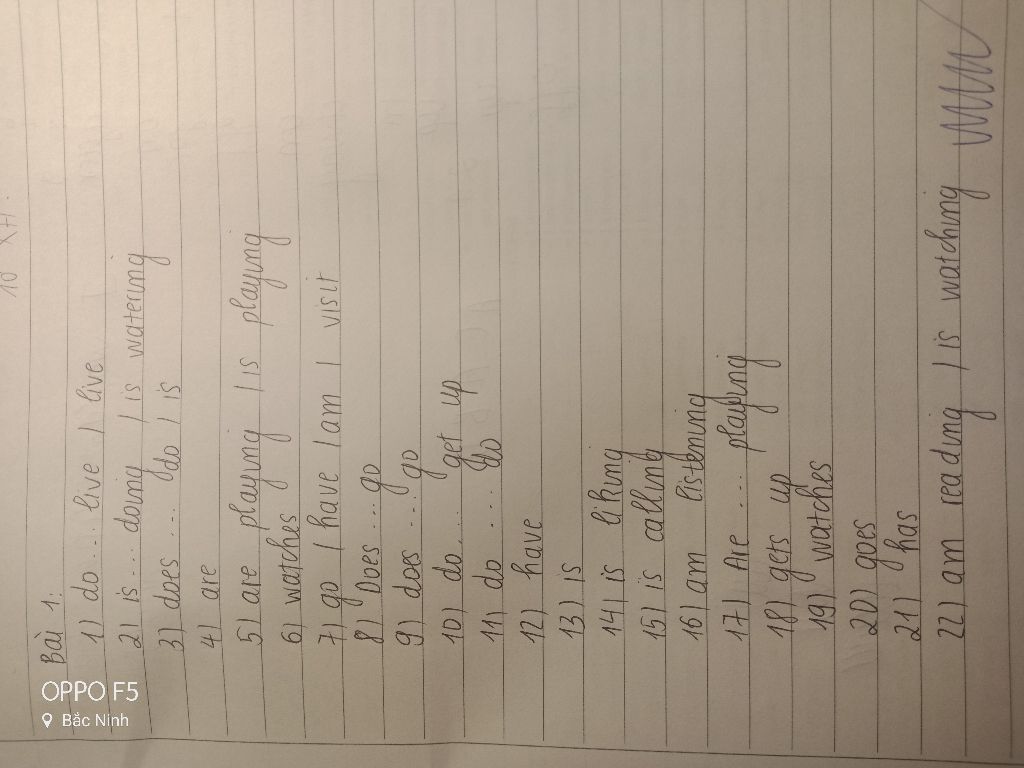 Bài 1:
1) do... live / live
2) is... doing / is watering
3) does... do / is
4) are
5) are playing / is playing
6) watches
7) go / have / am / visit
8) Does... go
9) does... go
10) do... get up
11) do... do
12) have
13) is
14) is liking
15) is calling
16) am listening
17) Are... playing
18) gets up
19) watches
20) goes
21) has
22) am reading / is watching
OPPO F5
Bắc Ninh